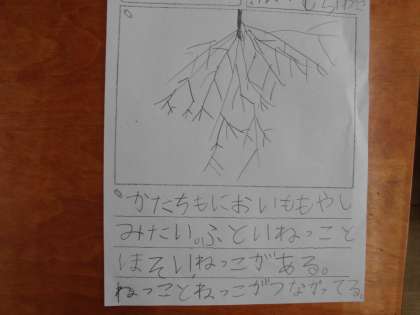 かたちもにおいももやし
みたい。ふといねっこと
ほそいねっこがある。
ねっことねっこがつながってる。